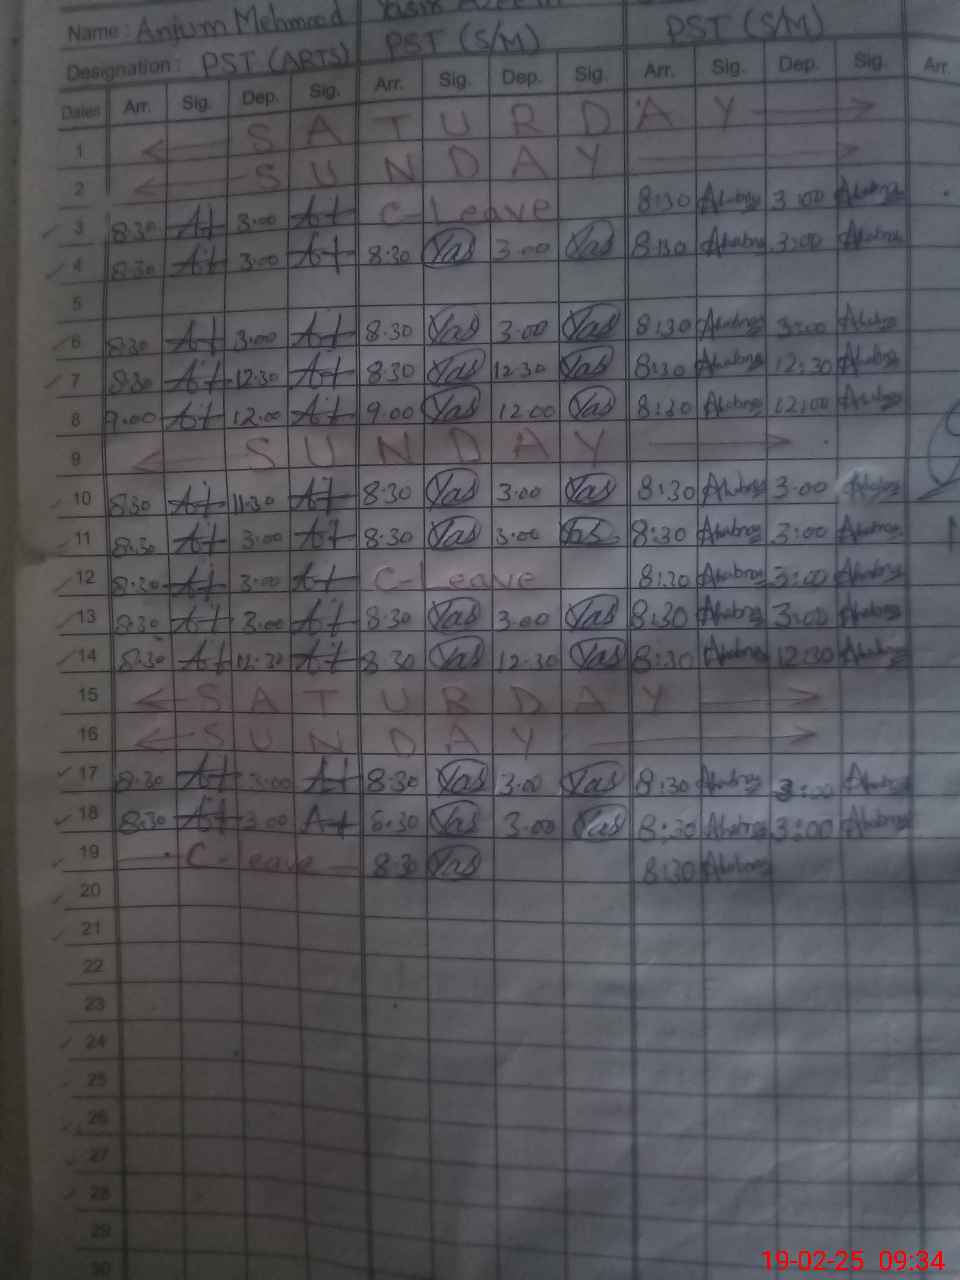 Name: Anjum Mehmood Yasir
Designation: PST (ARTS) PST (S/M) PST (S/M)
Dates Arr. Sig. Dep. Sig. Arr. Sig. Dep. Sig. Arr. Sig. Dep. Sig. Arr.
1 SATURDAY
2 SUNDAY
3 8:30 At 3:00 At C-Leave 8:30 3:00
4 8:30 At 3:00 At 8:30 Yas 3:00 Yas 8:30 3:00
5
6 8:30 At 3:00 At 8:30 Yas 3:00 Yas 8:30 3:00
7 8:30 At 12:30 At 8:30 Yas 12:30 Yas 8:30 12:30
8 9:00 At 12:00 At 9:00 Yas 12:00 Yas 8:30 12:00
9 SUNDAY
10 8:30 At 11:30 At 8:30 Yas 3:00 Yas 8:30 3:00
11 8:30 At 3:00 At 8:30 Yas 3:00 Yas 8:30 3:00
12 8:30 At 3:00 At C-Leave 8:30 3:00
13 8:30 At 3:00 At 8:30 Yas 3:00 Yas 8:30 3:00
14 8:30 At At 8:30 Yas 12:30 Yas 8:30 12:30
15 SATURDAY
16 SUNDAY
17 8:30 At 3:00 At 8:30 Yas 3:00 Yas 8:30 3:00
18 8:30 At 3:00 At 8:30 Yas 3:00 Yas 8:30 3:00
19 C-Leave 8:30 Yas 8:30
20
21
22
23
24
25
26
27
28
29
30
19-02-25 09:34